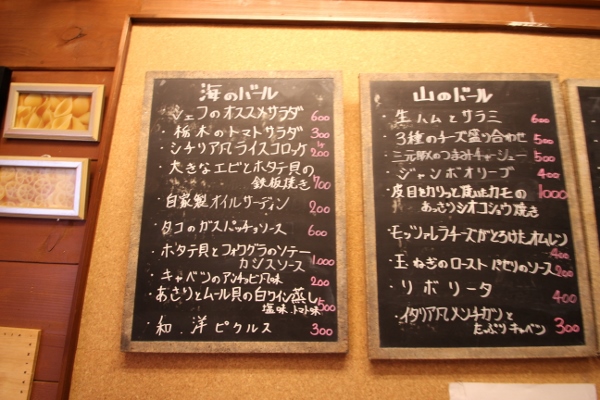 海のバール
・シェフのオススメサラダ 600
・栃木のトマトサラダ 300
・シチリア風ライスコロッケ 1ヶ 200
・大きなエビとホタテ貝の
鉄板焼き 700
・自家製オイルサーディン 200
・タコのガスパチョソース 600
・ホタテ貝とフォワグラのソテー
カシスソース 1000
・キャベツのアンチョビ風味 200
・あさりとムール貝の白ワイン蒸し
塩味、トマト味 500
・和 洋ピクルス 300
山のバール
・生ハムとサラミ 600
・3種のチーズ盛り合わせ 500
・三元豚のつまみチャーシュー 500
・ジャンボオリーブ 400
・皮目をカリっと焼いたカモの 1000
あっさりシオコショウ焼き
・モッツァレラチーズがとろけたオムレツ
400
・玉ねぎのロースト パセリのソース 200
・リボリータ 400
・イタリア風メンチカツと
たっぷりキャベツ 300